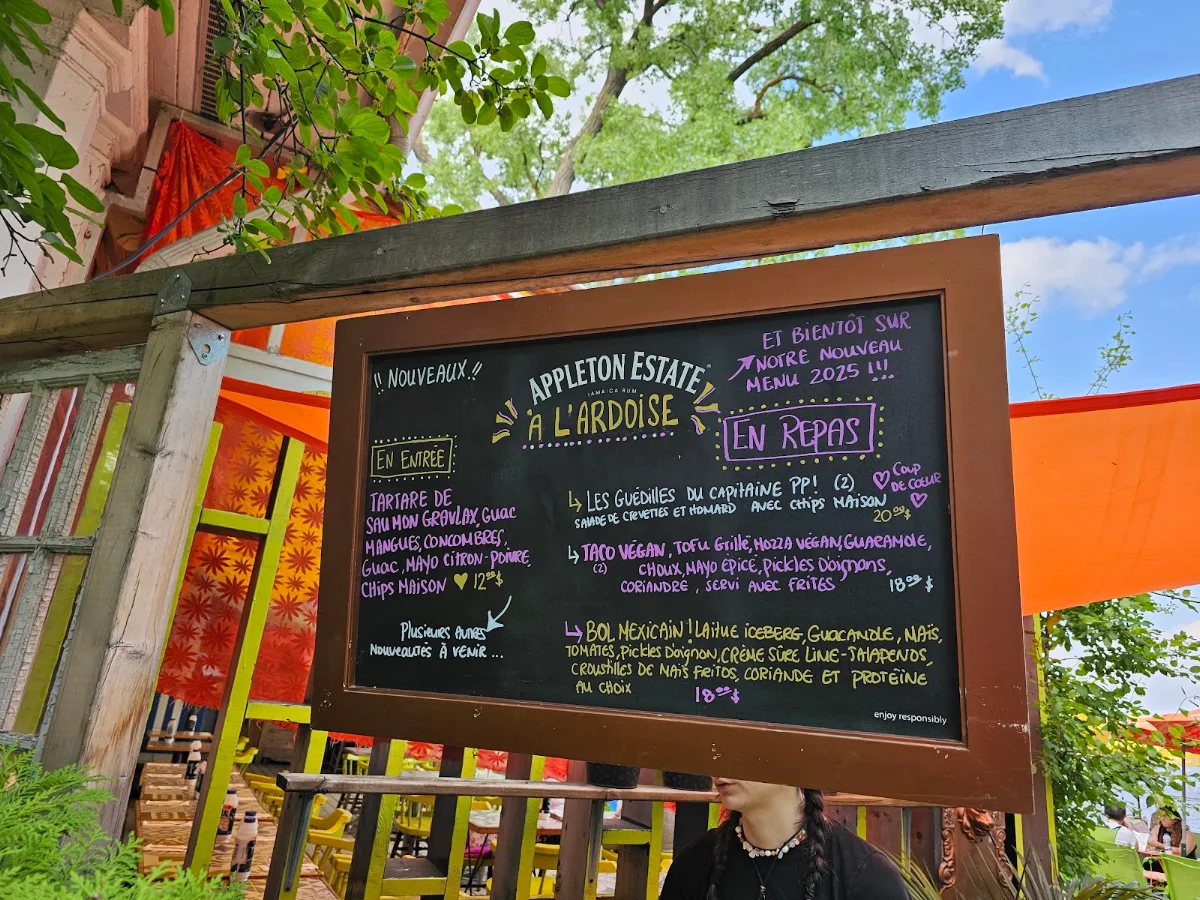 !! NOUVEAUX !!
APPLETON ESTATE
JAMAICA RUM
À L'ARDOISE
ET BIENTÔT SUR
NOTRE NOUVEAU
MENU 2025 !!!
EN ENTRÉE
TARTARE DE
SAUMON GRAVLAX, GUAC
MANGUES, CONCOMBRES,
GUAC, MAYO CITRON-POIVRE,
CHIPS MAISON 12.00$
PLUSIEURS AUTRES
NOUVEAUTÉS À VENIR ...
EN REPAS
LES GUÉDILLES DU CAPITAINE PP! (2)
SALADE DE CREVETTES ET HOMARD AVEC CHIPS MAISON
20.00$
COUP
DE COEUR
TACO VÉGAN, TOFU GRILLÉ, MOZZA VÉGAN, GUACAMOLE,
(2) CHOUX, MAYO ÉPICÉ, PICKLES D'OIGNONS,
CORIANDRE, SERVI AVEC FRITES 18.00$
BOL MEXICAIN! LAITUE ICEBERG, GUACAMOLE, MAÏS,
TOMATES, PICKLES D'OIGNON, CRÈME SÛRE LIME-JALAPENOS,
CROUSTILLES DE MAÏS FRITOS, CORIANDE ET PROTÉINE
AU CHOIX 18.00$
enjoy responsibly